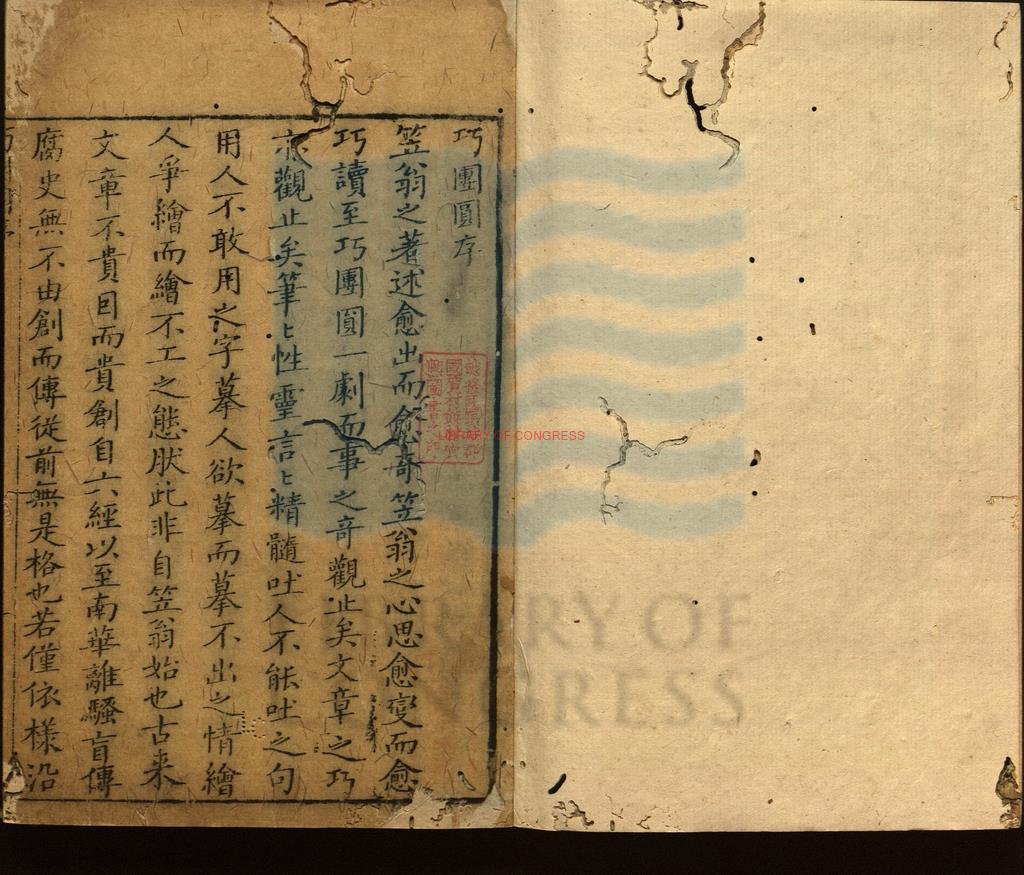 巧團圓序
笠翁之著述愈出而愈奇笠翁之心思愈變而愈
巧讀至巧團圓一劇而事之奇觀止矣文章之巧
亦觀止矣筆〻性靈言〻精髓吐人不能吐之句
用人不敢用之字摹人欲摹而摹不出之情繪
人爭繪而繪不工之態肰此非自笠翁始也古来
文章不貴因而貴創自六經以至南華離騷盲傳
腐史無不由創而傳從前無是格也若僅依樣沿
LIBRARY OF CONGRESS
LIBRARY OF
CONGRESS